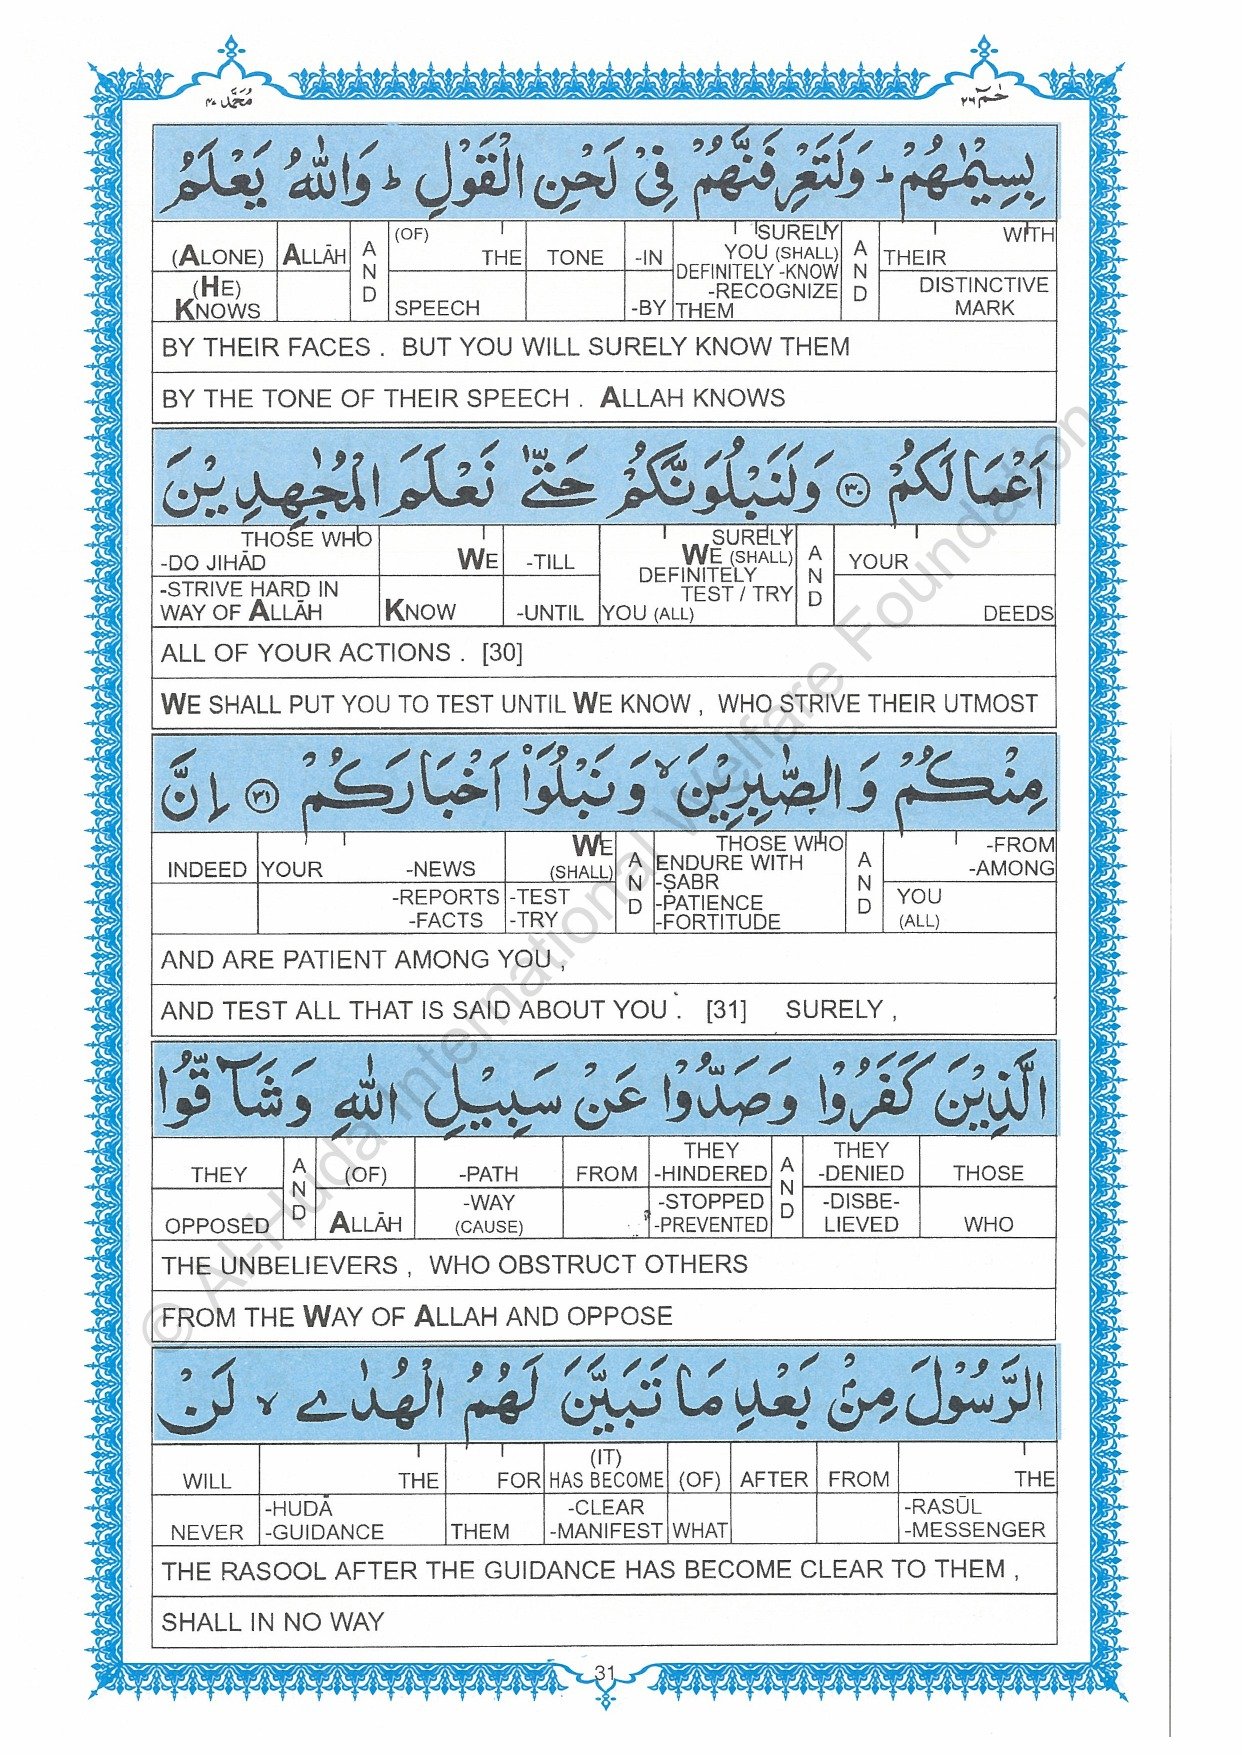 محمد ٤٧
حم ٢٦
بِسِيْمٰهُمْ ؕ وَلَتَعْرِفَنَّهُمْ فِيْ لَحْنِ الْقَوْلِ ؕ وَاللّٰهُ يَعْلَمُ
(ALONE) ALLĀH AND (OF) THE TONE -IN SURELY YOU (SHALL) DEFINITELY -KNOW AND THEIR WITH
(HE) KNOWS SPEECH -BY -RECOGNIZE THEM DISTINCTIVE MARK
BY THEIR FACES . BUT YOU WILL SURELY KNOW THEM
BY THE TONE OF THEIR SPEECH . ALLAH KNOWS
اَعْمَالَكُمْ ۝٣٠ وَلَنَبْلُوَنَّكُمْ حَتّٰى نَعْلَمَ الْمُجٰهِدِيْنَ
THOSE WHO -DO JIHĀD WE -TILL SURELY WE (SHALL) DEFINITELY AND YOUR
-STRIVE HARD IN WAY OF ALLĀH KNOW -UNTIL TEST / TRY YOU (ALL) DEEDS
ALL OF YOUR ACTIONS . [30]
WE SHALL PUT YOU TO TEST UNTIL WE KNOW , WHO STRIVE THEIR UTMOST
مِنْكُمْ وَالصّٰبِرِيْنَ ۙ وَنَبْلُوَا۟ اَخْبَارَكُمْ ۝٣١ اِنَّ
INDEED YOUR -NEWS WE (SHALL) AND THOSE WHO ENDURE WITH AND -FROM -AMONG
-REPORTS -FACTS -TEST -TRY -ṢABR -PATIENCE -FORTITUDE YOU (ALL)
AND ARE PATIENT AMONG YOU ,
AND TEST ALL THAT IS SAID ABOUT YOU . [31] SURELY ,
الَّذِيْنَ كَفَرُوْا وَصَدُّوْا عَنْ سَبِيْلِ اللّٰهِ وَشَآقُّوا
THEY AND (OF) -PATH FROM THEY -HINDERED AND THEY -DENIED THOSE
OPPOSED ALLĀH -WAY (CAUSE) -STOPPED -PREVENTED -DISBE-LIEVED WHO
THE UNBELIEVERS , WHO OBSTRUCT OTHERS
FROM THE WAY OF ALLAH AND OPPOSE
الرَّسُوْلَ مِنْۢ بَعْدِ مَا تَبَيَّنَ لَهُمُ الْهُدٰى ۙ لَنْ
WILL THE FOR (IT) HAS BECOME (OF) AFTER FROM THE
NEVER -HUDĀ -GUIDANCE THEM -CLEAR -MANIFEST WHAT -RASŪL -MESSENGER
THE RASOOL AFTER THE GUIDANCE HAS BECOME CLEAR TO THEM ,
SHALL IN NO WAY
31
© Al-Huda International Welfare Foundation